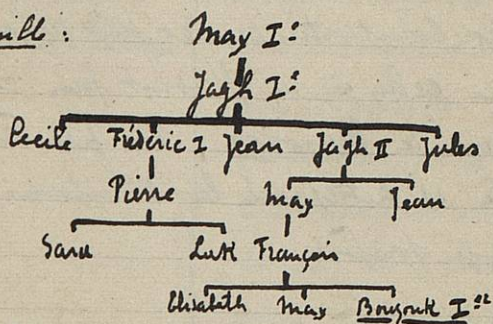 Max I:
Jagh I:
Cecile Fréderic I Jean Jagh II Jules
Pierre Max Jean
Sara Luk François
Elisabeth Max Bougouk I